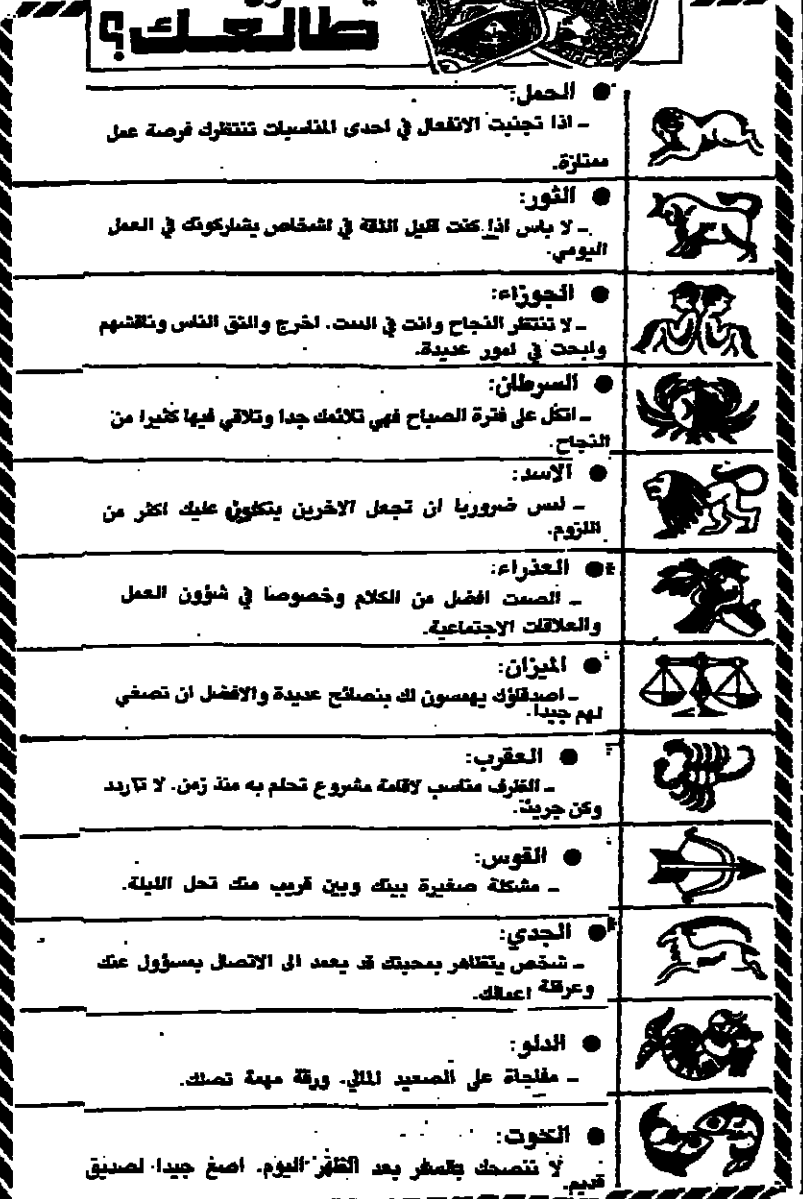 طالعك؟
● الحمل:
ـ اذا تجنبت الانفعال في احدى المناسبات تنتظرك فرصة عمل
ممتازة.
● الثور:
ـ لا باس اذا كنت قليل الثقة في اشخاص يشاركونك في العمل
اليومي.
● الجوزاء:
ـ لا تنتظر النجاح وانت في البيت. اخرج والتق الناس وناقشهم
وابحث في امور عديدة.
● السرطان:
ـ اتكل على فترة الصباح فهي تلائمك جدا وتلاقي فيها كثيرا من
النجاح.
● الاسد:
ـ ليس ضروريا ان تجعل الاخرين يتكلون عليك اكثر من
اللزوم.
● العذراء:
ـ الصمت افضل من الكلام وخصوصا في شؤون العمل
والعلاقات الاجتماعية.
● الميزان:
ـ اصدقاؤك يهمسون لك بنصائح عديدة والافضل ان تصغي
لهم جيدا.
● العقرب:
ـ الظرف مناسب لاقامة مشروع تحلم به منذ زمن. لا
وكن جريئا.
● القوس:
ـ مشكلة صغيرة بينك وبين قريب منك تحل الليلة.
● الجدي:
ـ شخص يتظاهر بمحبتك قد يعمد الى الاتصال بمسؤول عنك
وعرقلة اعمالك.
● الدلو:
ـ مفاجاة على الصعيد المالي. ورقة مهمة تصلك.
● الحوت:
لا ننصحك بالسفر بعد الظهر اليوم. اصغ جيدا لصديق
قديم.